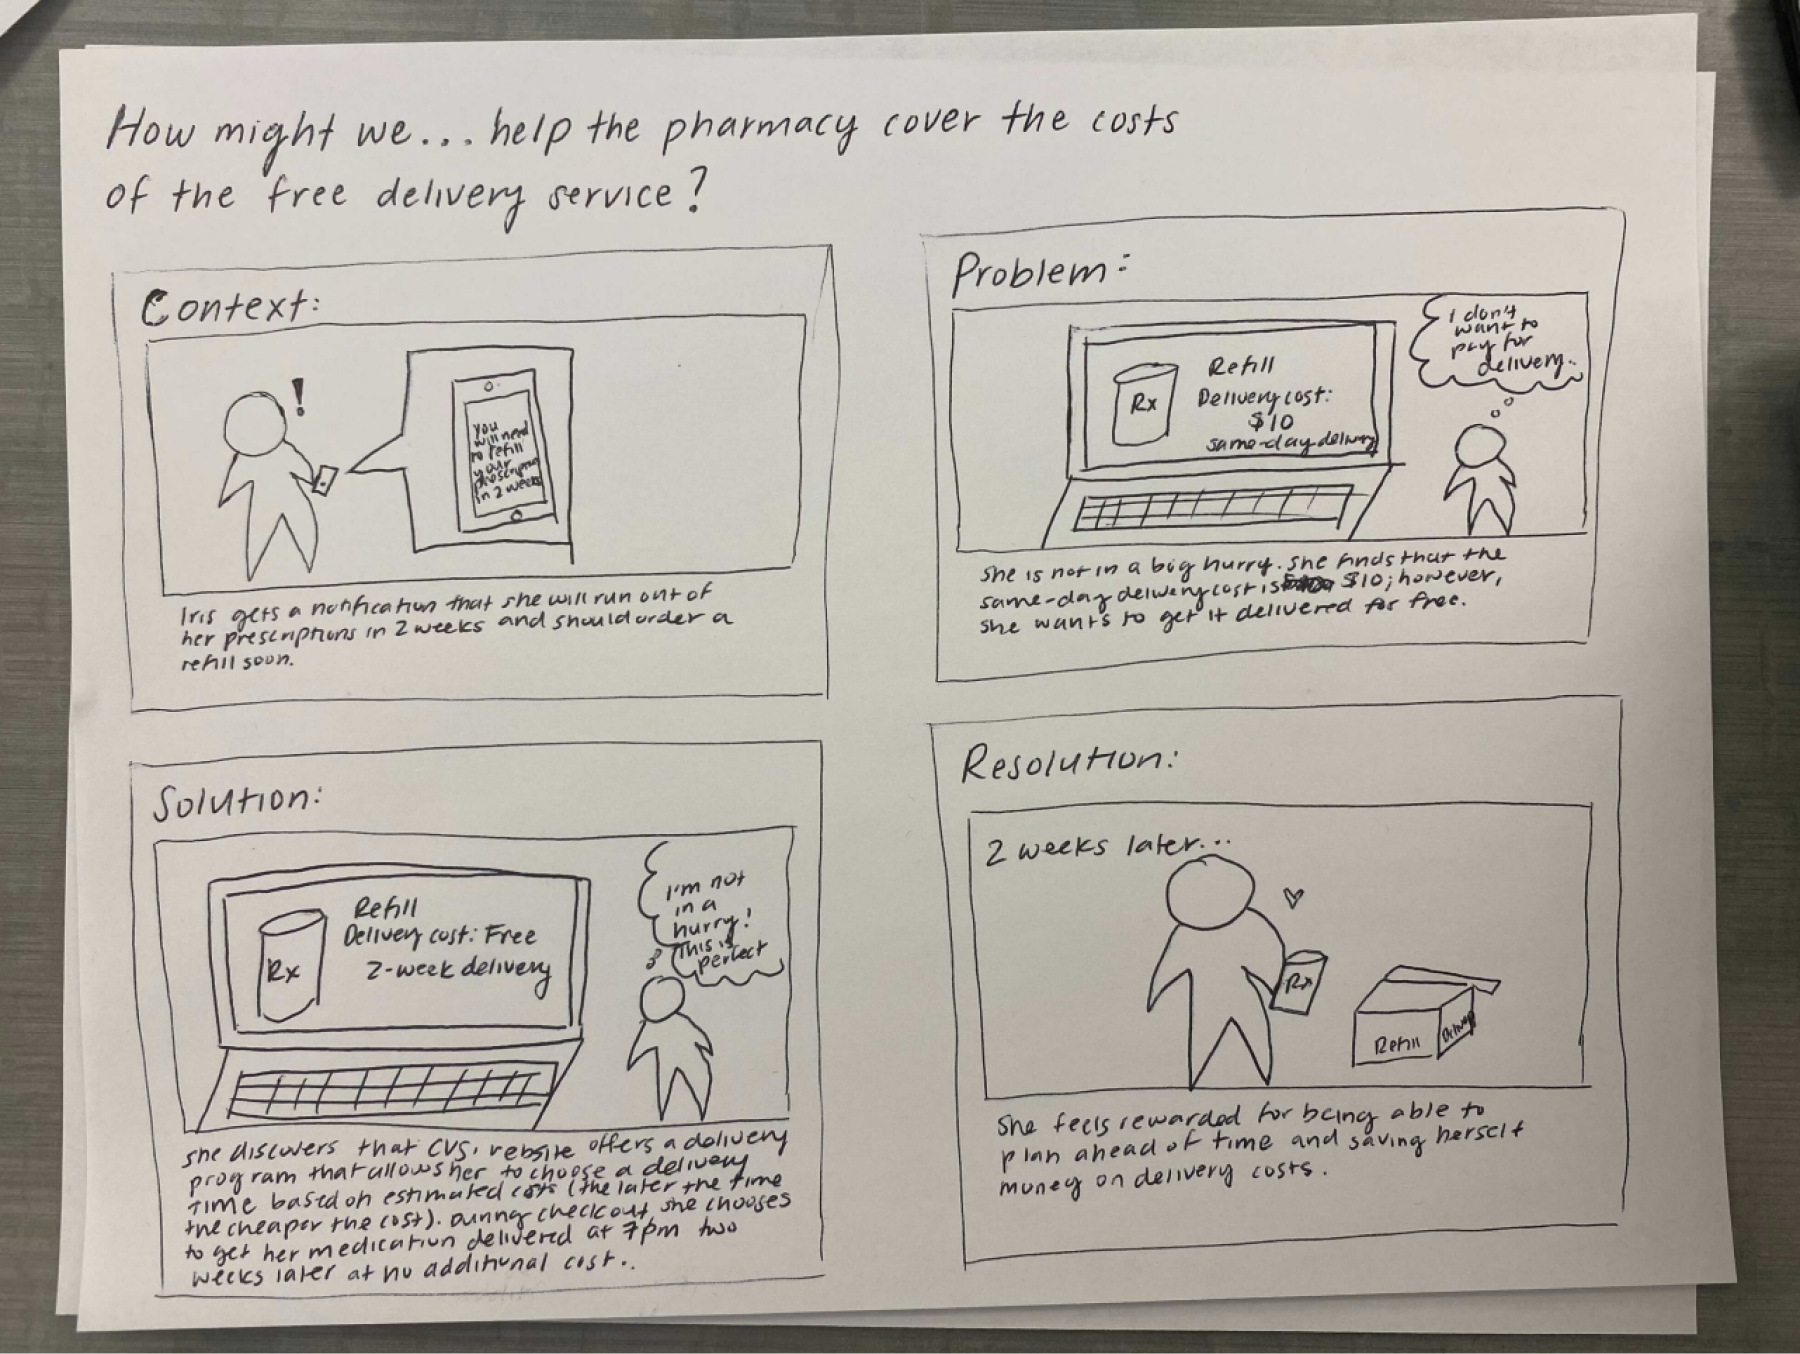 How might we... help the pharmacy cover the costs
of the free delivery service?
Context:
!
you
will need
to refill
your
prescription
in 2 weeks
Iris gets a notification that she will run out of
her prescriptions in 2 weeks and should order a
refill soon.
Problem:
Rx
Refill
Delivery cost:
$10
same-day delivery
I don't
want to
pay for
delivery..
She is not in a big hurry. She finds that the
same-day delivery cost is $10; however,
she wants to get it delivered for free.
Solution:
Rx
Refill
Delivery cost: Free
2-week delivery
I'm not
in a
hurry!
This is
perfect
She discovers that CVS' website offers a delivery
program that allows her to choose a delivery
time based on estimated costs (the later the time
the cheaper the cost). During checkout she chooses
to get her medication delivered at 7pm two
weeks later at no additional cost..
Resolution:
2 weeks later...
Rx
Refill
Delivery
She feels rewarded for being able to
plan ahead of time and saving herself
money on delivery costs.